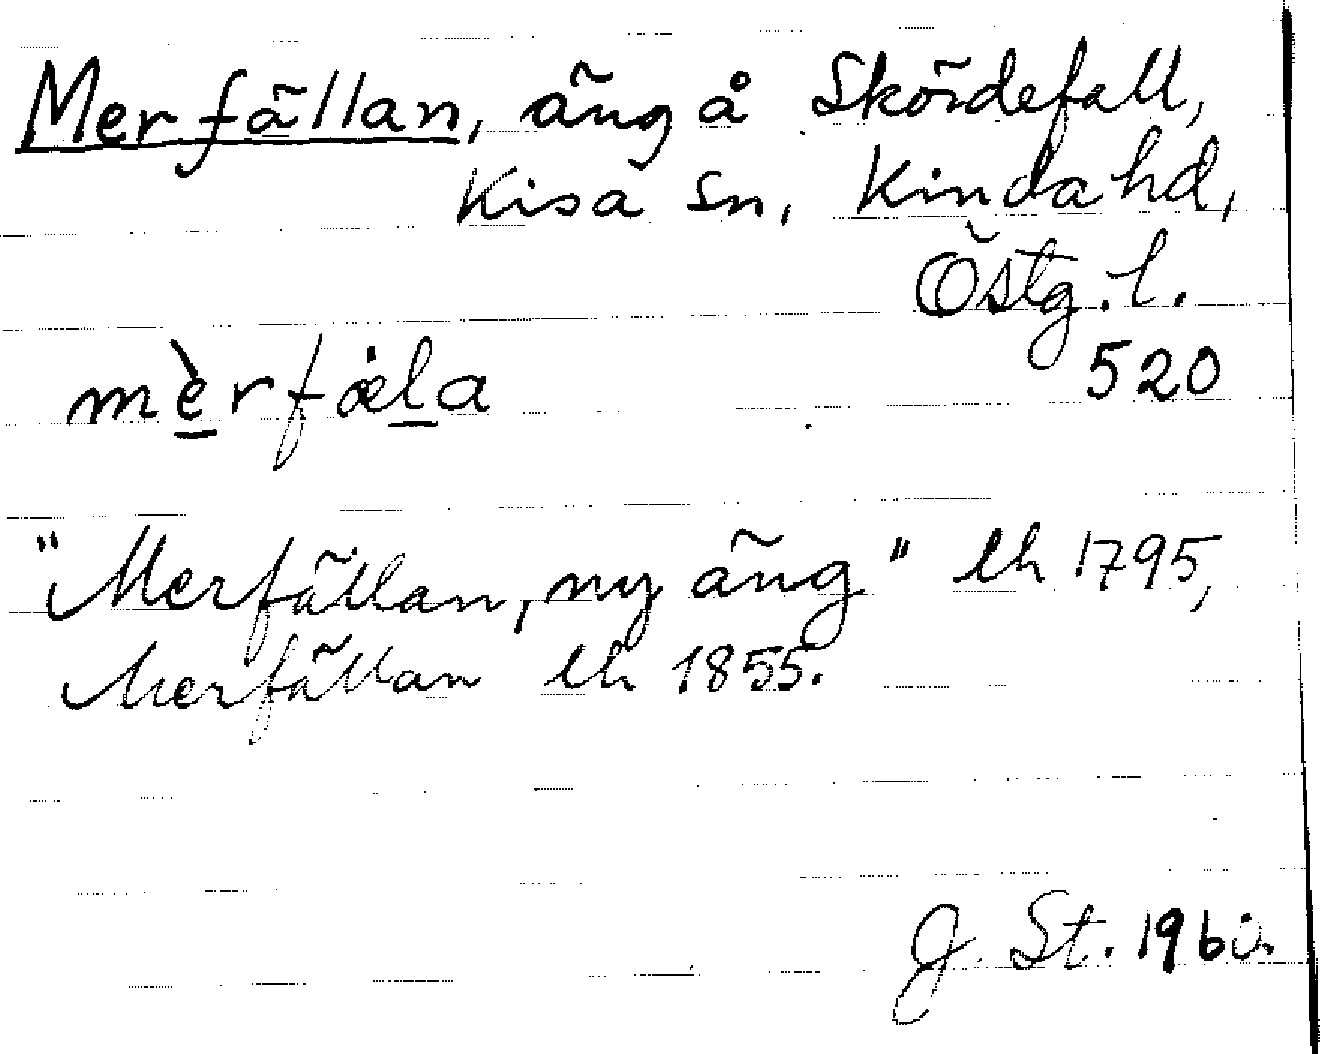 Merfällan, äng å Skördefall,
Kisa sn, Kinda hd,
Östg. l.
520
mèrfäla
"Merfällan, ny äng" lh 1795,
Merfällan lh 1855.
J. St. 1960.